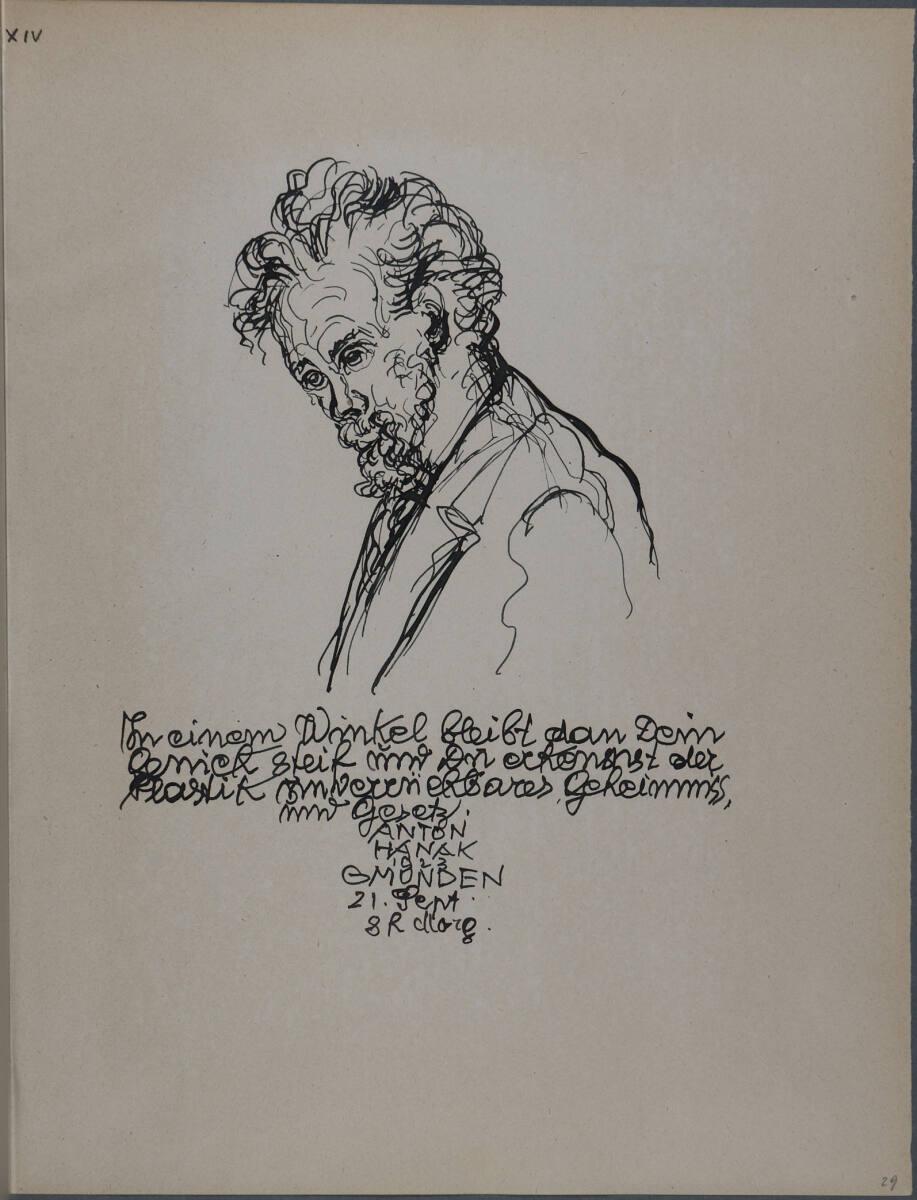 XIV
In einem Winkel bleibt dan Dein
Genick steif und Du erkennst der
Plastik unverrückbares Geheimniss,
und Gesetz.
ANTON
HANAK
1923
GMUNDEN
21. Sept.
8 Morg.
29